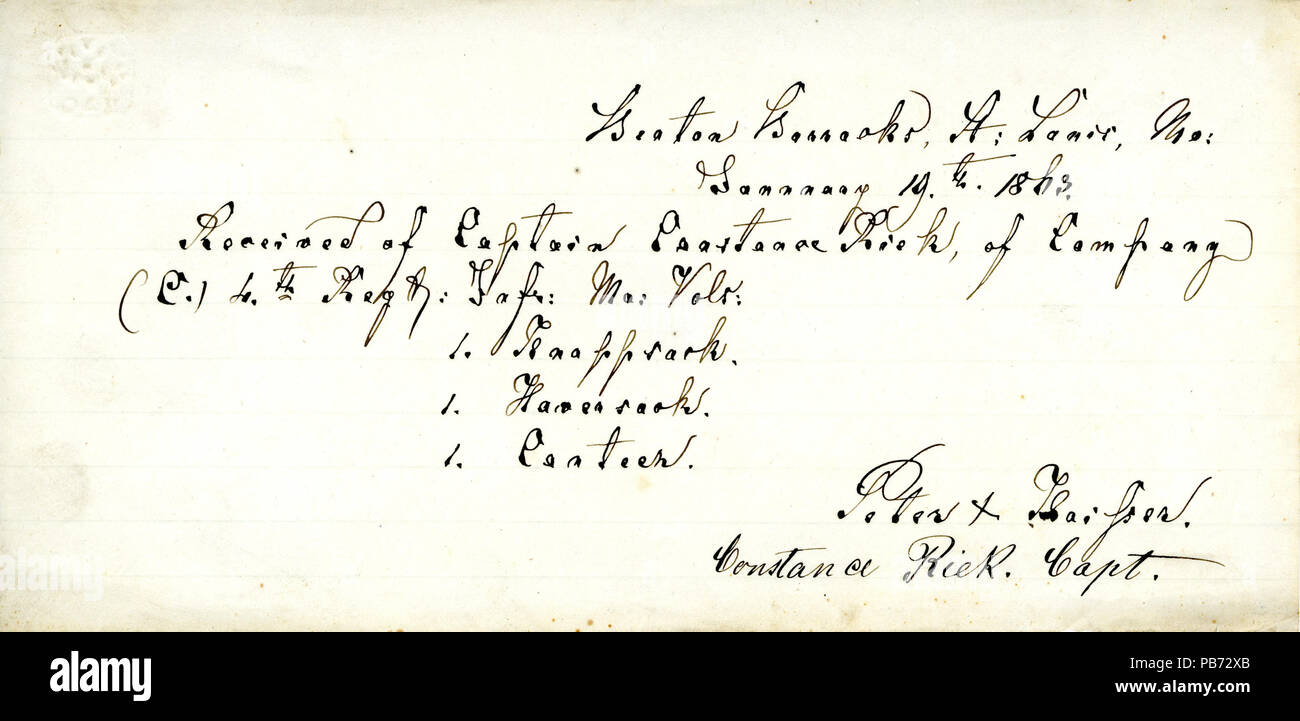 Benton Barracks, St: Louis, Mo:
January 19.th. 1863.
Received of Captain Constance Riek, of Company
(C.) 4.th Regt: Inf: Mo: Vols:
1. Knappsack.
1. Haversack.
1. Canteen.
Peter X
Constance Riek. Capt.
alamy
alamy
Image ID: PB72XB
www.alamy.com